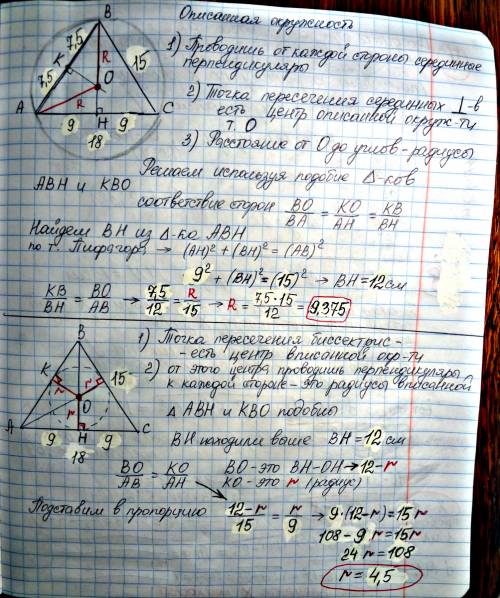 Описанная окружность
B
7,5
K
7,5
R
O
15
R
A
H
C
9 9
18
1) Проводишь от каждой стороны серединные
перпендикуляры
2) Точка пересечения серединных ⊥-в
есть центр описанной окруж-ти
т. O
3) Расстояние от O до углов - радиусы
Решаем используя подобие Δ-ков
ABH и KBO
соответствие сторон BO/BA = KO/AH = KB/BH
Найдем BH из Δ-ка ABH
по т. Пифагора → (AH)² + (BH)² = (AB)²
9² + (BH)² = (15)² → BH = 12 см
KB/BH = BO/AB → 7,5/12 = R/15 → R = 7,5·15/12 = 9.375
B
K
15
r
O
r
r
A
H
C
9 9
18
1) Точка пересечения биссектрис-
- есть центр вписанной окр-ти
2) от этого центра проводишь перпендикуляры
к каждой стороне - это радиусы вписанной
Δ ABH и KBO подобны
BH находили выше BH = 12 см
BO/AB = KO/AH
BO - это BH-OH → 12-r
KO - это r (радиус)
Подставим в пропорцию 12-r/15 = r/9 → 9·(12-r) = 15r
108 - 9r = 15r
24r = 108
r = 4,5